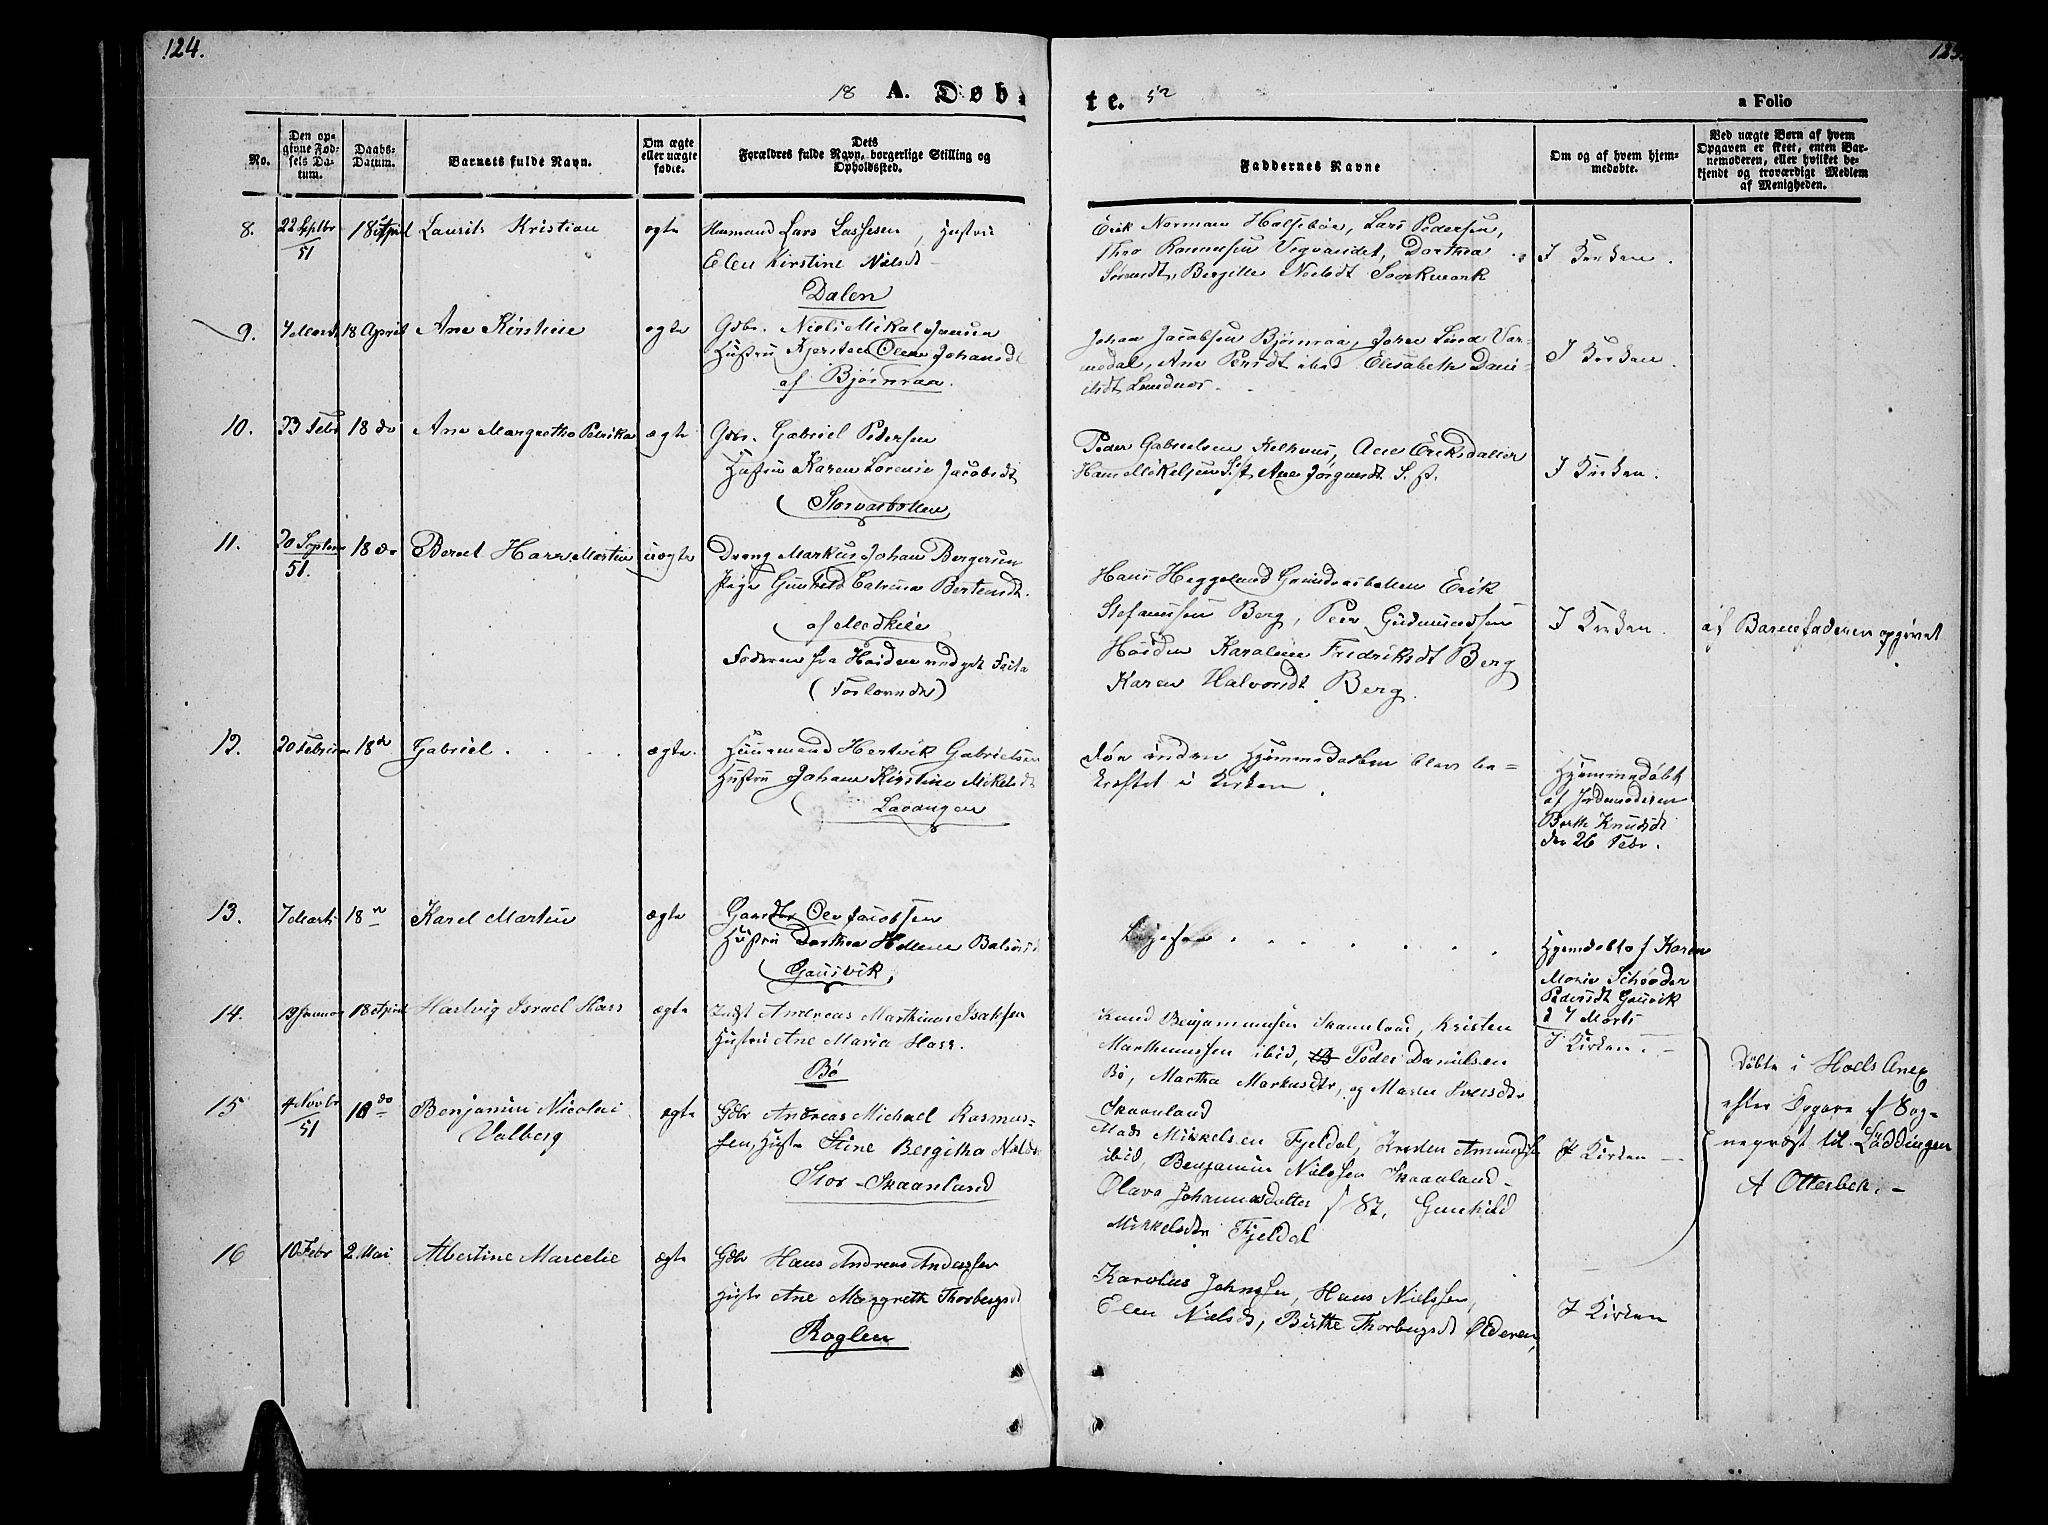 124.
125.
18 A. Døb- te. 52
a Folio
No.
Den op-
givne Fød-
sels Da-
tum.
Daabs-
Datum.
Barnets fulde Navn.
Om ægte
eller uægte
fødte.
Dets
Forældres fulde Navn, borgerlige Stilling og
Opholdssted.
Faddernes Navne
Om og af hvem hjem-
medøbte.
Ved uægte Børn af hvem
Opgaven er skeet, enten Bar-
nemoderen, eller hvilket be-
kjendt og troværdigt Medlem
af Menigheden.
8. 22 Septbr 18 April Laurits Kristian ægte Huusmand Lars Lassesen, Hustru
51
Elen Kirstine Nielsdt
Dalen
Erik Norman Halsebøe, Lars Pedersen,
Thro Rasmusen Vigvandet, Dorthea
Nielsdt
I Kirken.
9. 7 Marts 18 April Ane Kirstine ægte Gdbr. Niels Mikal Jensen
Hustru Kjersten Olena Johansdt
af Bjørnraa.
Johan Jacobsen Bjørnraa, Johan Lind
Ane ibid Elisabeth Dani-
elsdt
I Kirken.
10. 23 Febr 18 do Ane Margrethe Petrika ægte Gdbr. Gabriel Pedersen
Hustru Karen Lorense Jacobsdt
Storvasbotten
Peder Gabrielsen Kelhuus, Ane Eriksdatter
Hans Mikelsen S.st Ane Jørgensdt S.st.
I Kirken.
11. 20 Septem 18 do Bernt Hans Martin uægte Dreng Markus Johan Bergersen
51.
Pige Gunhild Catrina Bertensdt.
af Medkile
Faderen fra Høiden
(Forlovede)
Hans Heggelund Grundvasbotten Erik
Stefanussen Berg, Peer Gudmundsen
Høiden Karoline Fredriksdt Berg
Karen Halvorsdt Berg.
I Kirken.
af Barnefaderen opgivet
12. 20 Februar 18 do Gabriel ægte. Huusmand Hertvik Gabrielsen
Hustru Johana Kirstine Mikelsdt
Lavangen
Hjemmedaaben blev be-
kræftet i Kirken.
Hjemmedøbt
af Jordmoderen
Berthe Knudsdt
den 26 Febr.
13. 7 Marts 18 Karel Martin ægte Gaardbr Ole Jacobsen
Hustru Dorthea Hellene
Gausvik,
Ligesaa
Hjemdøbt af Karen
Marie Schrøder
Pedersdt Gausvik
d 7 Marts
14. 19 Januar 18 April Hartvig Israel Hass ægte Indst Andreas Marthinus Isaksen
Hustru Ane Maria Hass.
Bø
Knud Benjaminsen Skaanland, Kristen
Marthinussen ibid, Peder Danielsen
Bø, Martha Markusdtr, og Maren Iversdtr
Skaanland
I Kirken.
15 4 Novbr 18 do Benjamin Nicolai ægte Gdbr Andreas Michael Rasmus-
51
Valberg
sen, Hustr Stine Bergitha Nielsdtr
Stor-Skaanland
Mads Mikkelsen Fjeldal, Kristen Amundsen
ibid, Benjamin Nielssen Skaanland
Olava Johannesdatter S st, Gunhild
Mikkelsdtr Fjeldal
I Kirken
døbte i Hools Anex
efter Opgave af Sog-
nepræst til Løddingen
A Otterbek.
16 10 Febr 2 Mai Albertine Marcelie ægte Gdbr Hans Andreas Anderssen
Hustr Ane Margreth Thorbergsdt
Roglen
Karolius Johnssen, Hans Nielssen,
Elen Nielsdt, Birthe Thorbergsdt Olderen,
I Kirken